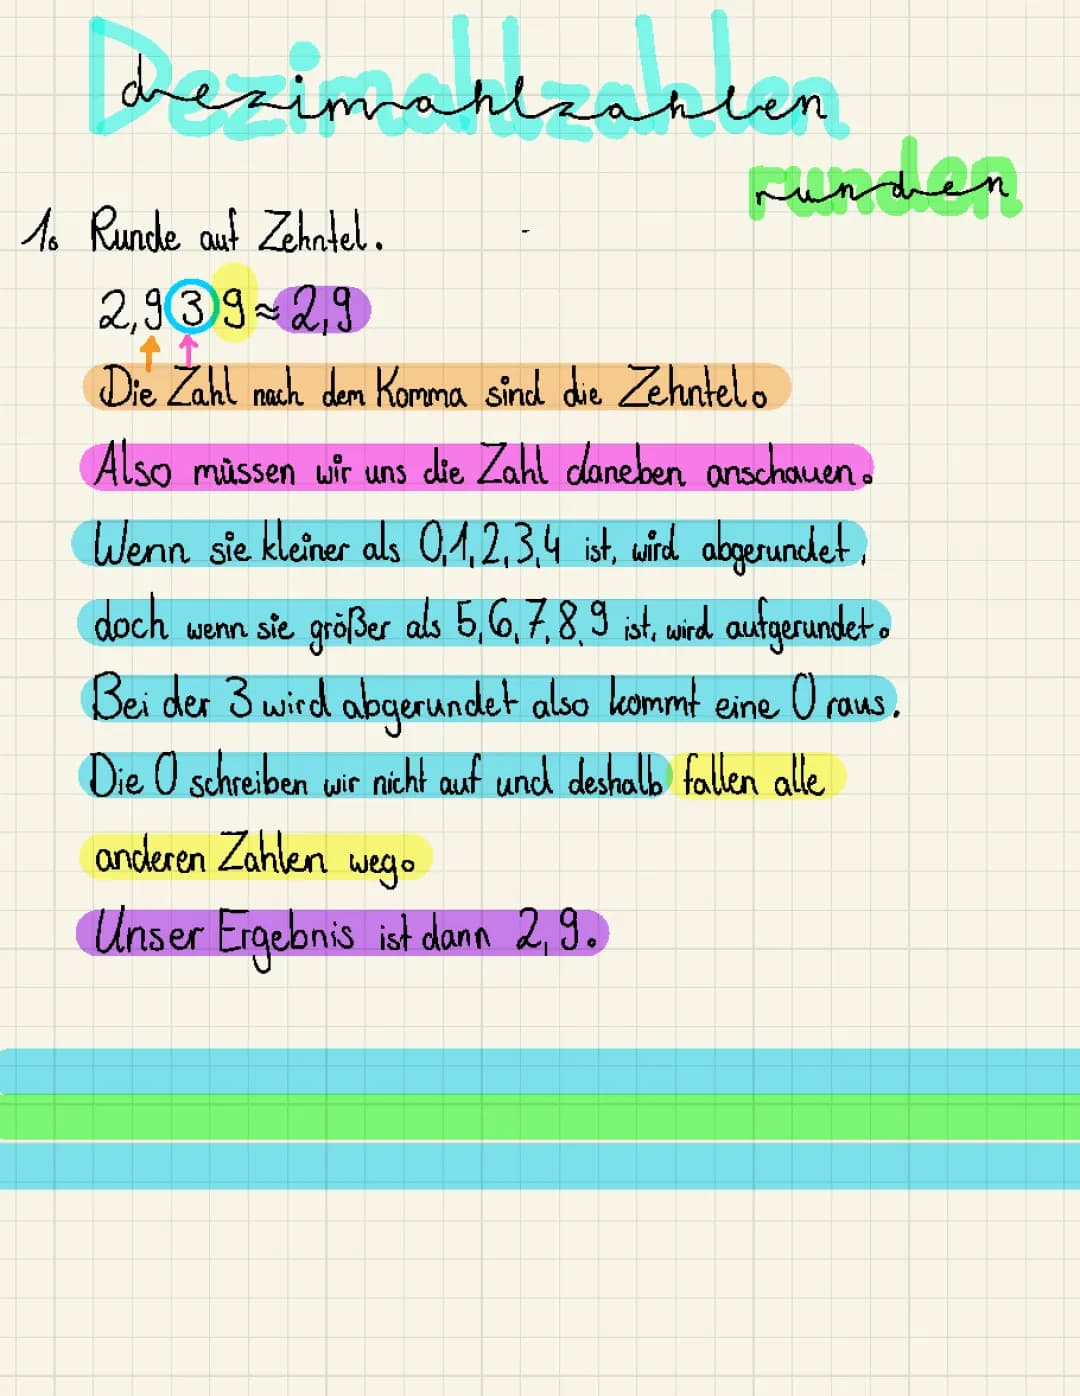 Dezimahlzahlen
dezimahlzahlen
runden
runden
1. Runde auf Zehntel.
2,939 ≈ 2,9
Die Zahl nach dem Komma sind die Zehntel.
Also müssen wir uns die Zahl daneben anschauen.
Wenn sie kleiner als 0,1,2,3,4 ist, wird abgerundet,
doch wenn sie größer als 5,6,7,8,9 ist, wird aufgerundet.
Bei der 3 wird abgerundet also kommt eine 0 raus.
Die 0 schreiben wir nicht auf und deshalb fallen alle
anderen Zahlen weg.
Unser Ergebnis ist dann 2,9.